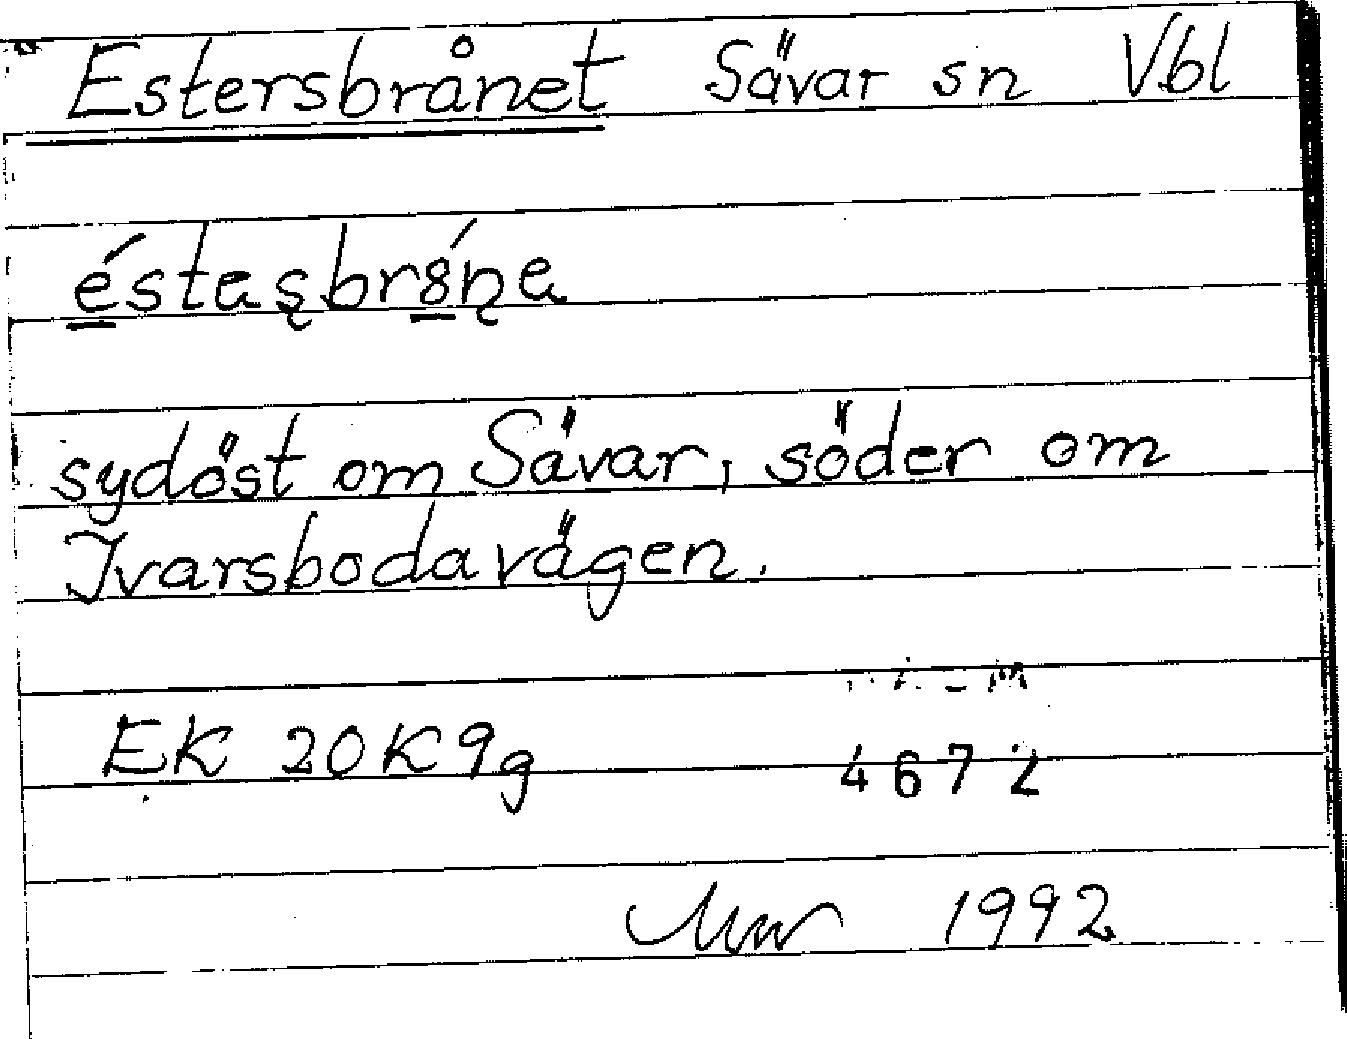 Estersbrånet Sävar sn Vbl
éstasbr8́na
sydöst om Sävar, söder om
Ivarsbodavägen.
EK 20K9g 4672
1992